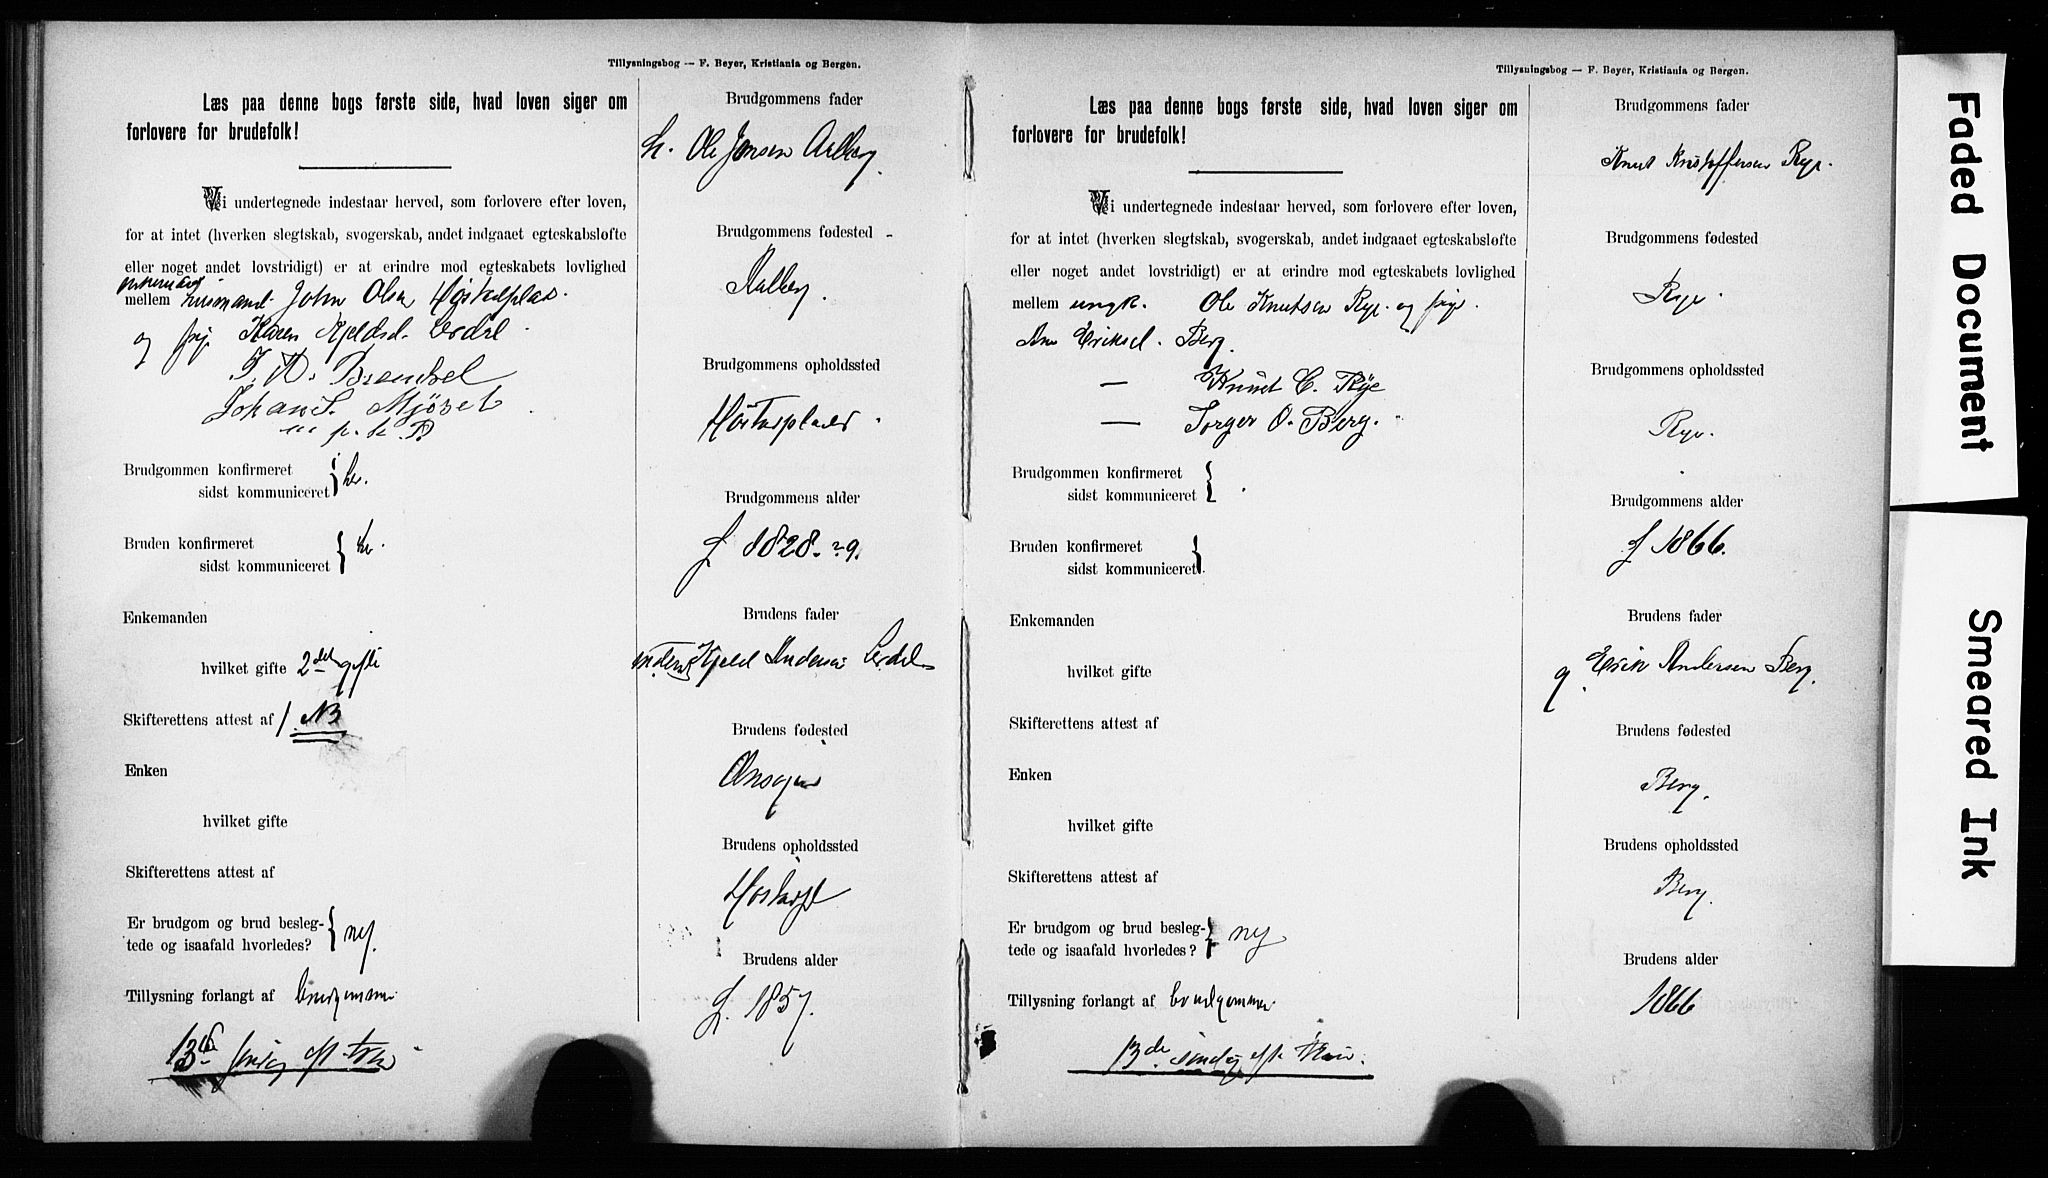 Tillysningsbog — F. Beyer, Kristiania og Bergen.
Læs paa denne bogs første side, hvad loven siger om
forlovere for brudefolk!
Vi undertegnede indestaar herved, som forlovere efter loven,
for at intet (hverken slegtskab, svogerskab, andet indgaaet egteskabsløfte
eller noget andet lovstridigt) er at erindre mod egteskabets lovlighed
mellem husmand John Olsen
og pige Karen Kjeldsd. Lerdal
Johan S. Mjöset
m p. k B
Brudgommen konfirmeret
sidst kommuniceret
Bruden konfirmeret
sidst kommuniceret
Enkemanden
hvilket gifte 2det gifte
Skifterettens attest af / NB
Enken
hvilket gifte
Skifterettens attest af
Er brudgom og brud besleg-
tede og isaafald hvorledes? nej.
Tillysning forlangt af brudgommen
13de søndag eft. Trin.
Brudgommens fader
Ole Jonsen Aalberg.
Brudgommens fødested
Aalberg.
Brudgommens opholdssted
Brudgommens alder
f. 1828-29.
Brudens fader
Kjeld Andersen Lerdal
Brudens fødested
Brudens opholdssted
Brudens alder
f. 1857.
Tillysningsbog — F. Beyer, Kristiania og Bergen.
Læs paa denne bogs første side, hvad loven siger om
forlovere for brudefolk!
Vi undertegnede indestaar herved, som forlovere efter loven,
for at intet (hverken slegtskab, svogerskab, andet indgaaet egteskabsløfte
eller noget andet lovstridigt) er at erindre mod egteskabets lovlighed
mellem ungk. Ole Knutsen Rye og pige
Ane Eriksd. Berg.
— Knut C. Rye
— Torger O. Berg.
Brudgommen konfirmeret
sidst kommuniceret
Bruden konfirmeret
sidst kommuniceret
Enkemanden
hvilket gifte
Skifterettens attest af
Enken
hvilket gifte
Skifterettens attest af
Er brudgom og brud besleg-
tede og isaafald hvorledes? nej
Tillysning forlangt af brudgommen
13de søndag eft. Trin.
Brudgommens fader
Knut Kristoffersen Rye.
Brudgommens fødested
Rye.
Brudgommens opholdssted
Rye.
Brudgommens alder
f 1866.
Brudens fader
g. Erik Andersen Berg.
Brudens fødested
Berg.
Brudens opholdssted
Berg.
Brudens alder
1866
Faded Document
Smeared Ink